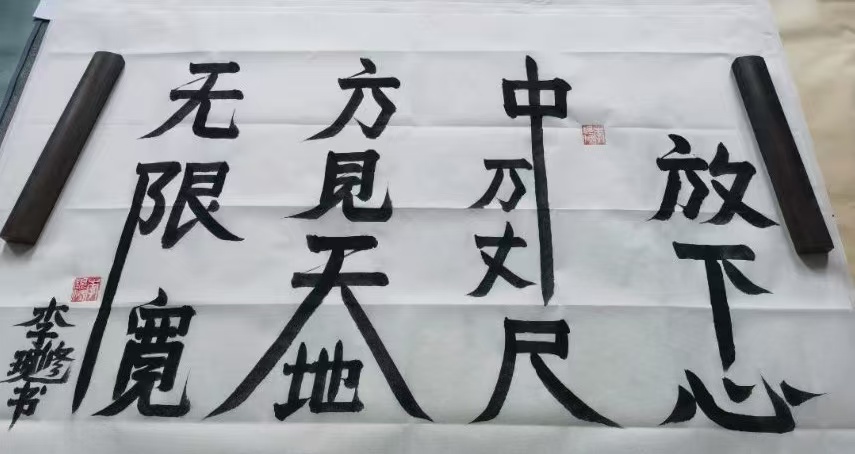 放下心
中万丈尺
方見天地
无限寬
李修書